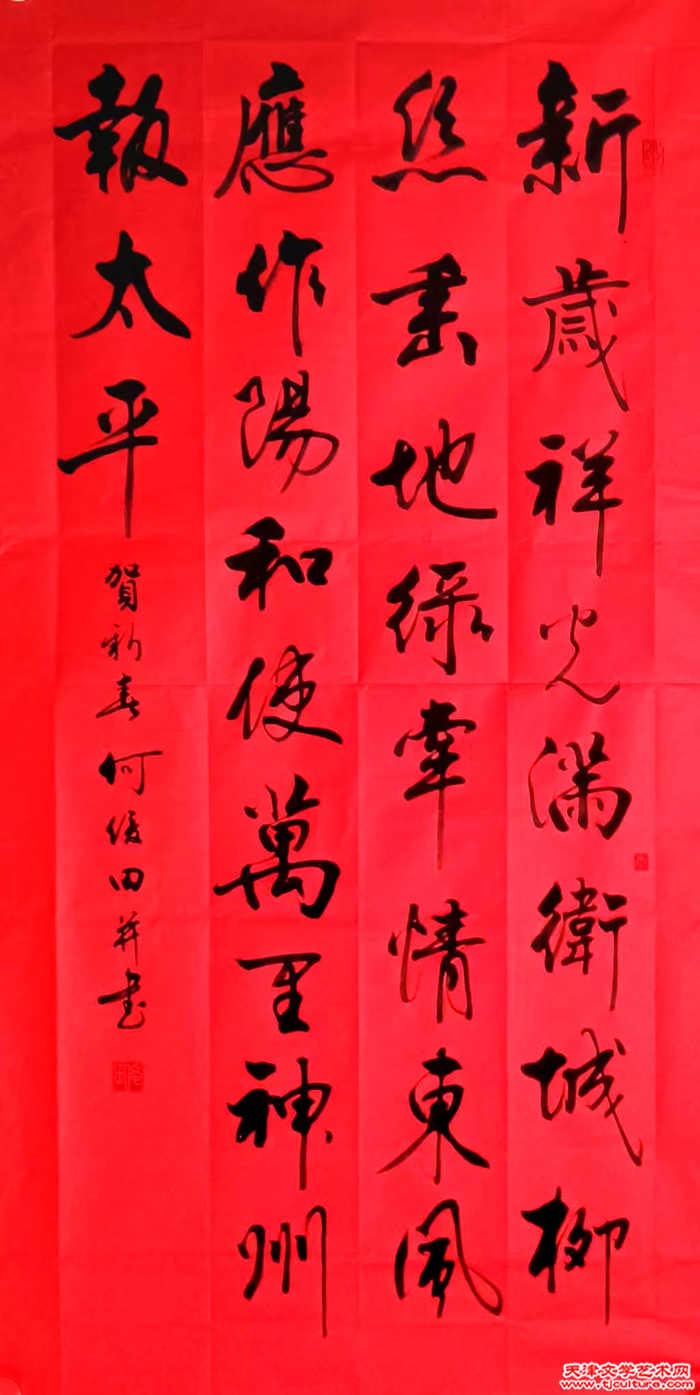 新歲祥光滿衛城柳
絲垂地綠牽情東風
應作陽和使萬里神州
報太平
賀新春何俊田并書
天津文学艺术网
www.tjculture.com